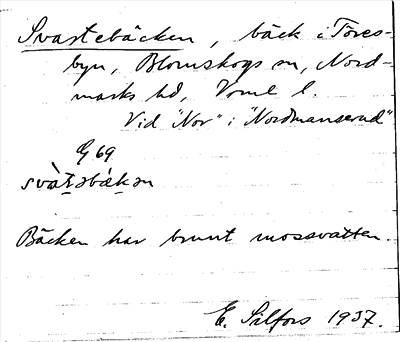 Svartebäcken, bäck i Töres-
byn, Blomskogs sn, Nord-
marks hd, Vrml l.
Vid "Nor" i "Nordmanserud"
G 69
Bäcken har brunt mossvatten.
E. Silfors 1937.